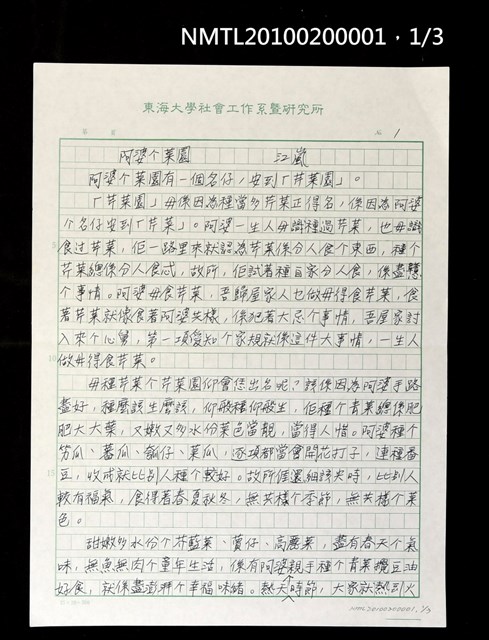 NMTL20100200001,1/3
東海大學社會工作系暨研究所
第 頁
№ 1
阿婆个菜園 江嵐
阿婆个菜園有一個名仔,安到「芹菜園」。
「芹菜園」毋係因為種當多芹菜正得名,係因為阿婆
个名仔安到「芹菜」。阿婆一生人毋識種過芹菜,也毋識
食过芹菜,佢一路里來就認為芹菜係分人食个東西,種个
芹菜總係分人食忒,故所,佢試著種自家分人食,係盡戇
个事情。阿婆毋食芹菜,吾歸屋家人也做毋得食芹菜,食
著芹菜就像食著阿婆共樣,係犯著大忌个事情,吾屋家討
入來个心舅,第一項愛知个家規就係這件大事情,一生人
做毋得食芹菜。
毋種芹菜个芹菜園仰會恁出名呢?該係因為阿婆手路
盡好,種麼該生麼該,仰般種仰般生,佢種个青菜總係肥
肥大大葉,又嫩又多水份菜色當靚,當得人惜。阿婆種个
菜瓜、蕃瓜、瓠仔、苦瓜,逐項都當會開花打子,連種番
豆,收成就比別人種个較好。故所𠊎還細該央時,比別人
較有福氣,食得著春夏秋冬,無共樣个季節,無共樣个菜
色。
甜嫩多水份个芥藍菜、蕒仔、高麗菜,盡有春天个氣
味,無魚無肉个童年生活,係有阿婆親手種个青菜攪豆油
好食,就係盡澎湃个幸福味緒。熱天時節,大家就熱到火
NMTL20100200001,1/3